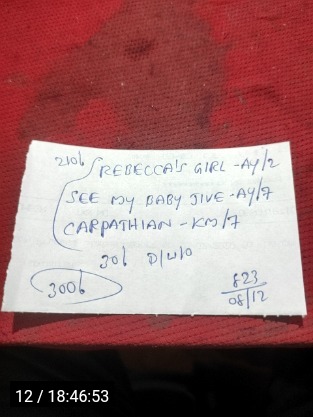 210b REBECCA'S GIRL - AY/2
SEE MY BABY JIVE - AY/7
CARPATHIAN - KM/7
30b D/U/O
300b
823
08/12
12 / 18:46:53